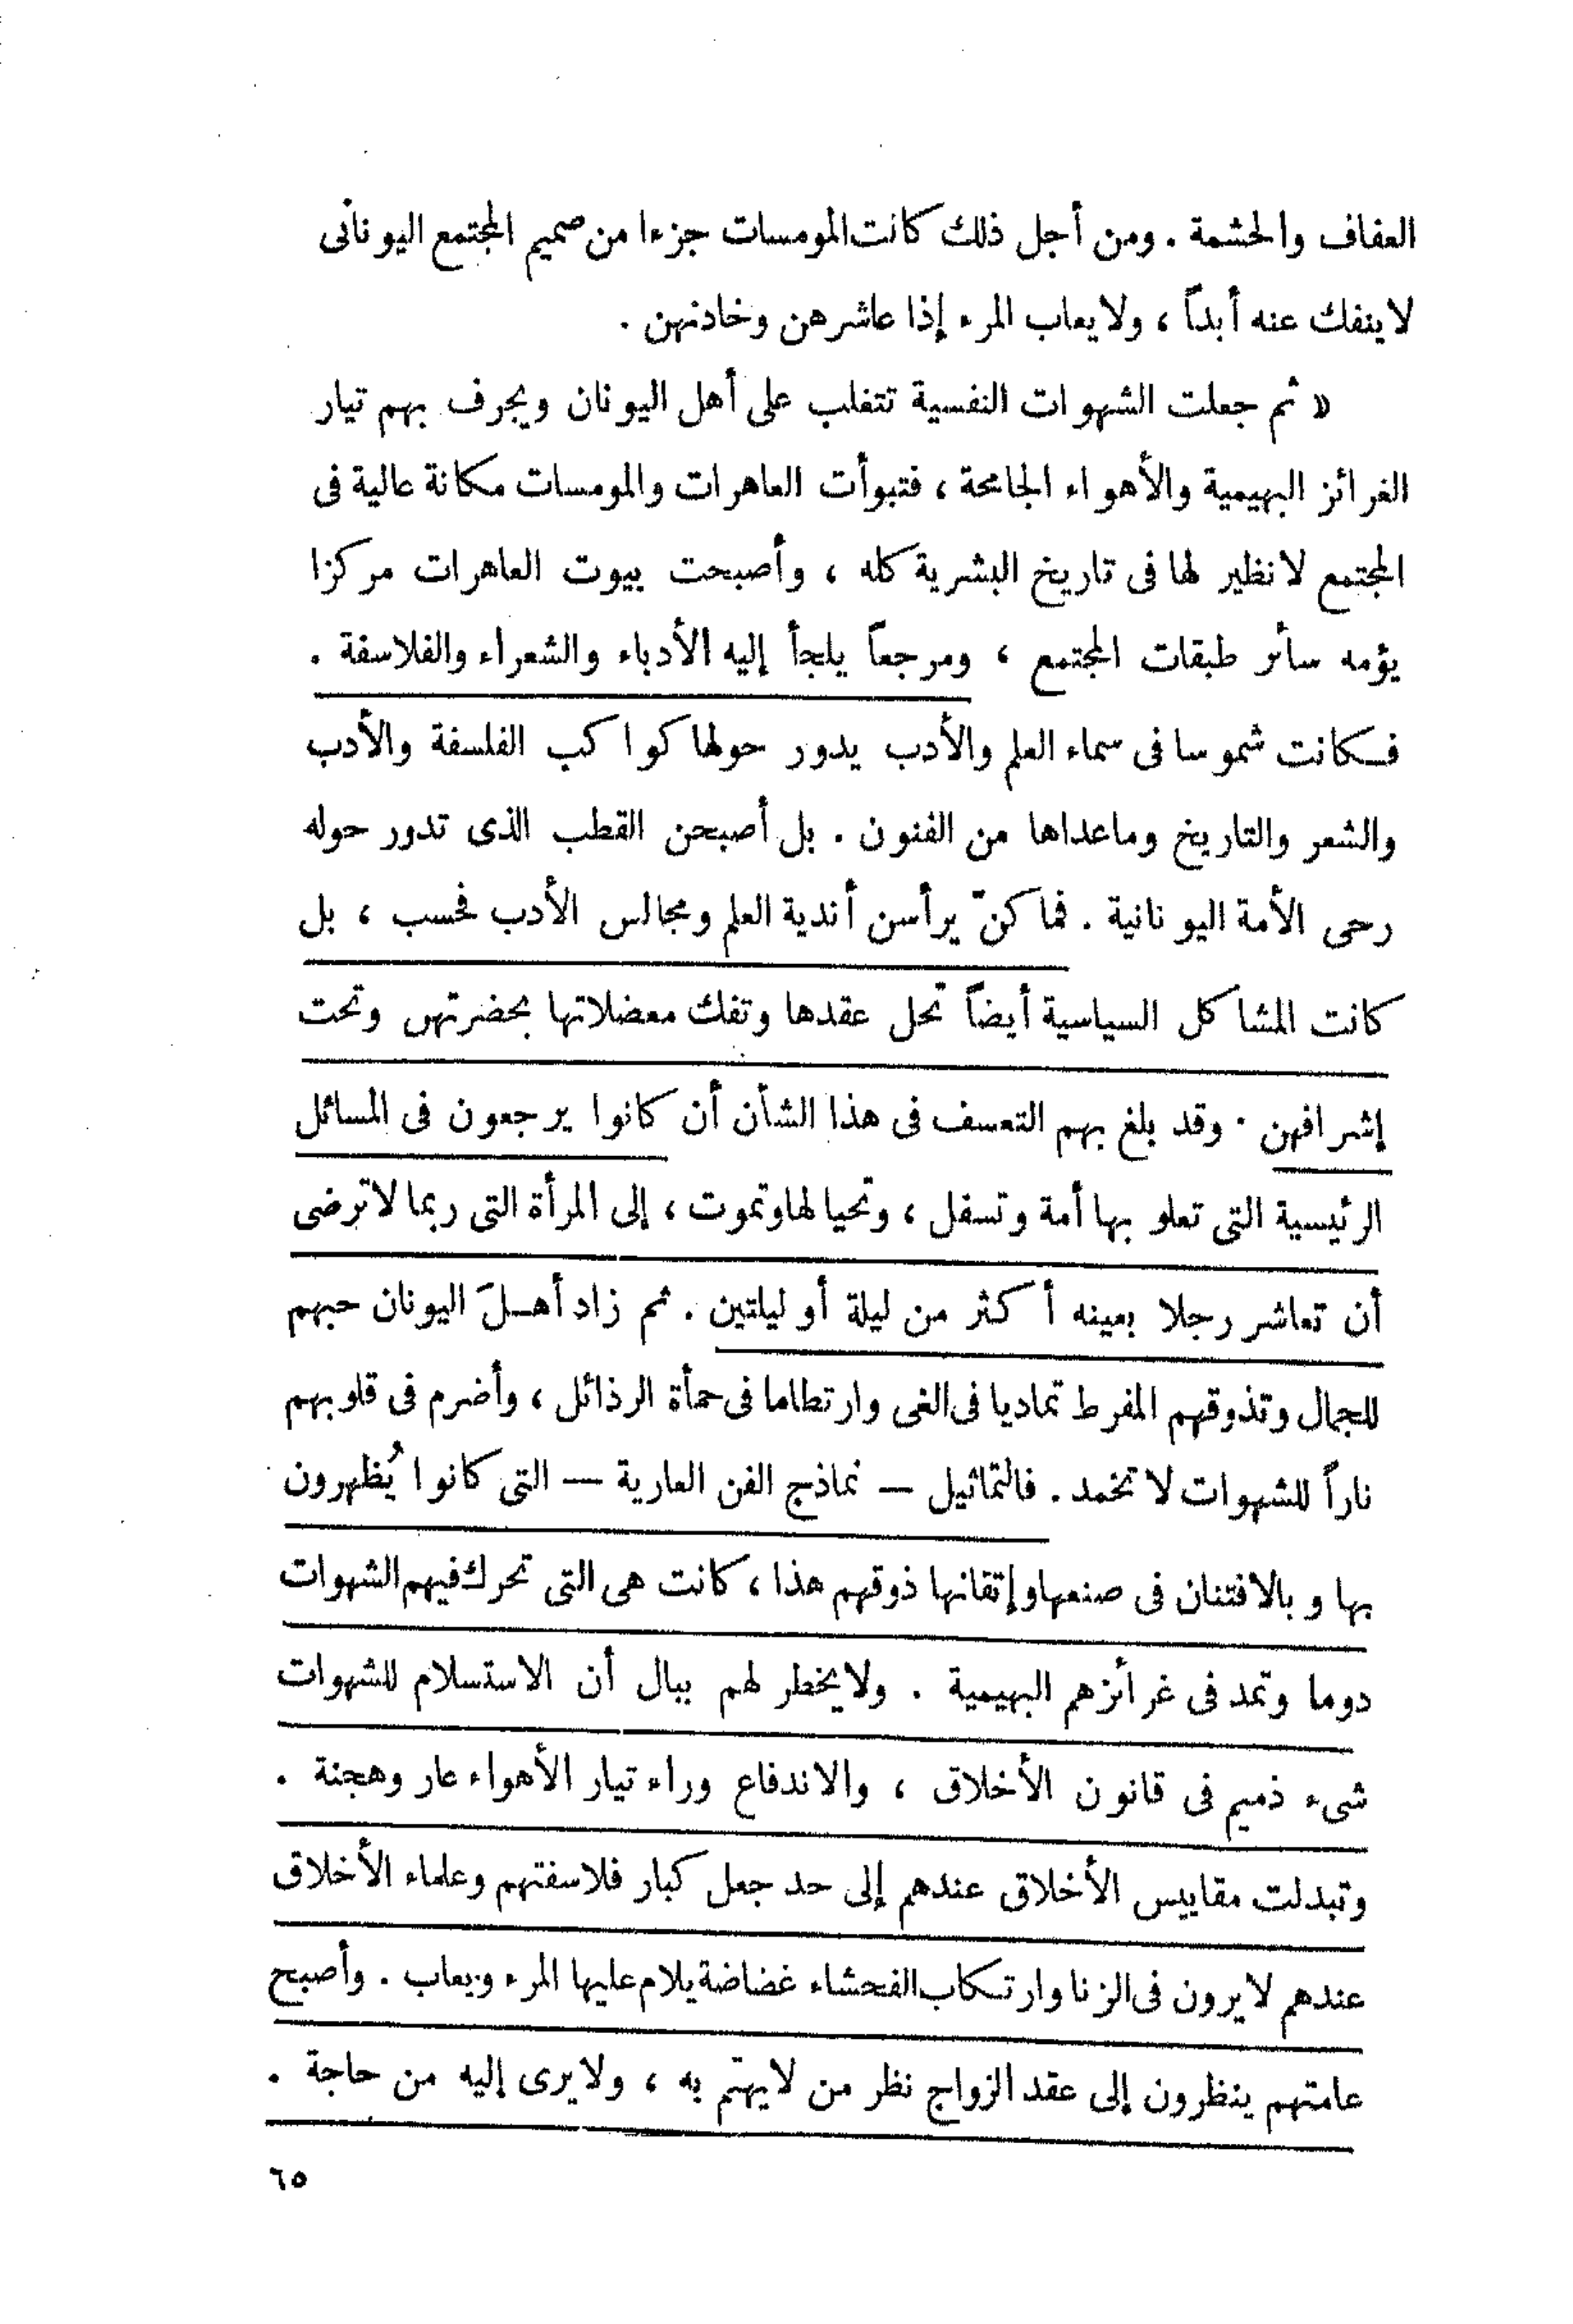 العفاف والحشمة . ومن أجل ذلك كانت المومسات جزءا من صميم المجتمع اليونانى
لاينفك عنه أبداً ، ولايعاب المرء إذا عاشرهن وخادنهن .
« ثم جعلت الشهوات النفسية تتغلب على أهل اليونان ويجرف بهم تيار
الغرائز البهيمية والأهواء الجامحة ، فتبوأت العاهرات والمومسات مكانة عالية فى
المجتمع لانظير لها فى تاريخ البشرية كله ، وأصبحت بيوت العاهرات مركزا
يؤمه سائر طبقات المجتمع ، ومرجعاً يلجأ إليه الأدباء والشعراء والفلاسفة .
فكانت شموسا فى سماء العلم والأدب يدور حولها كواكب الفلسفة والأدب
والشعر والتاريخ وماعداها من الفنون . بل أصبحن القطب الذى تدور حوله
رحى الأمة اليونانية . فما كنّ يرأسن أندية العلم ومجالس الأدب فحسب ، بل
كانت المشاكل السياسية أيضاً تحل عقدها وتفك معضلاتها بحضرتهن وتحت
إشرافهن . وقد بلغ بهم التعسف فى هذا الشأن أن كانوا يرجعون فى المسائل
الرئيسية التى تعلو بها أمة وتسفل ، وتحيا لها وتموت ، إلى المرأة التى ربما لاترضى
أن تعاشر رجلا بعينه أكثر من ليلة أو ليلتين . ثم زاد أهلَ اليونان حبهم
للجمال وتذوقهم المفرط تماديا فى الغى وارتطاما فى حمأة الرذائل ، وأضرم فى قلوبهم
ناراً للشهوات لا تخمد . فالتماثيل – نماذج الفن العارية – التى كانوا يُظهرون
بها وبالافتنان فى صنعها وإتقانها ذوقهم هذا ، كانت هى التى تحرك فيهم الشهوات
دوما وتمد فى غرائزهم البهيمية . ولايخطر لهم ببال أن الاستسلام للشهوات
شىء ذميم فى قانون الأخلاق ، والاندفاع وراء تيار الأهواء عار وهجنة .
وتبدلت مقاييس الأخلاق عندهم إلى حد جعل كبار فلاسفتهم وعلماء الأخلاق
عندهم لايرون فى الزنا وارتكاب الفحشاء غضاضة يلام عليها المرء ويعاب . وأصبح
عامتهم ينظرون إلى عقد الزواج نظر من لايهتم به ، ولايرى إليه من حاجة .
٦٥